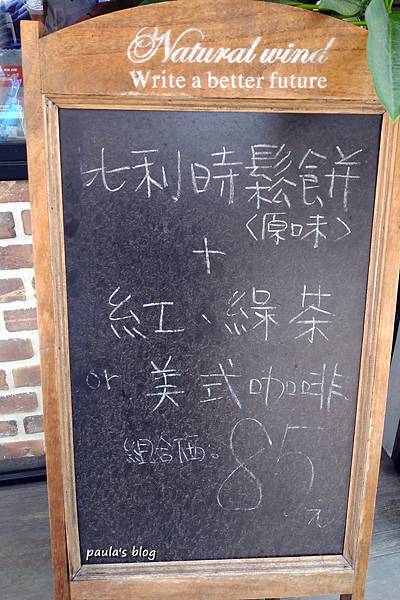 Natural wind
Write a better future
比利時鬆餅
〈原味〉
+
紅、綠茶
or 美式咖啡
組合価:85元
paula's blog